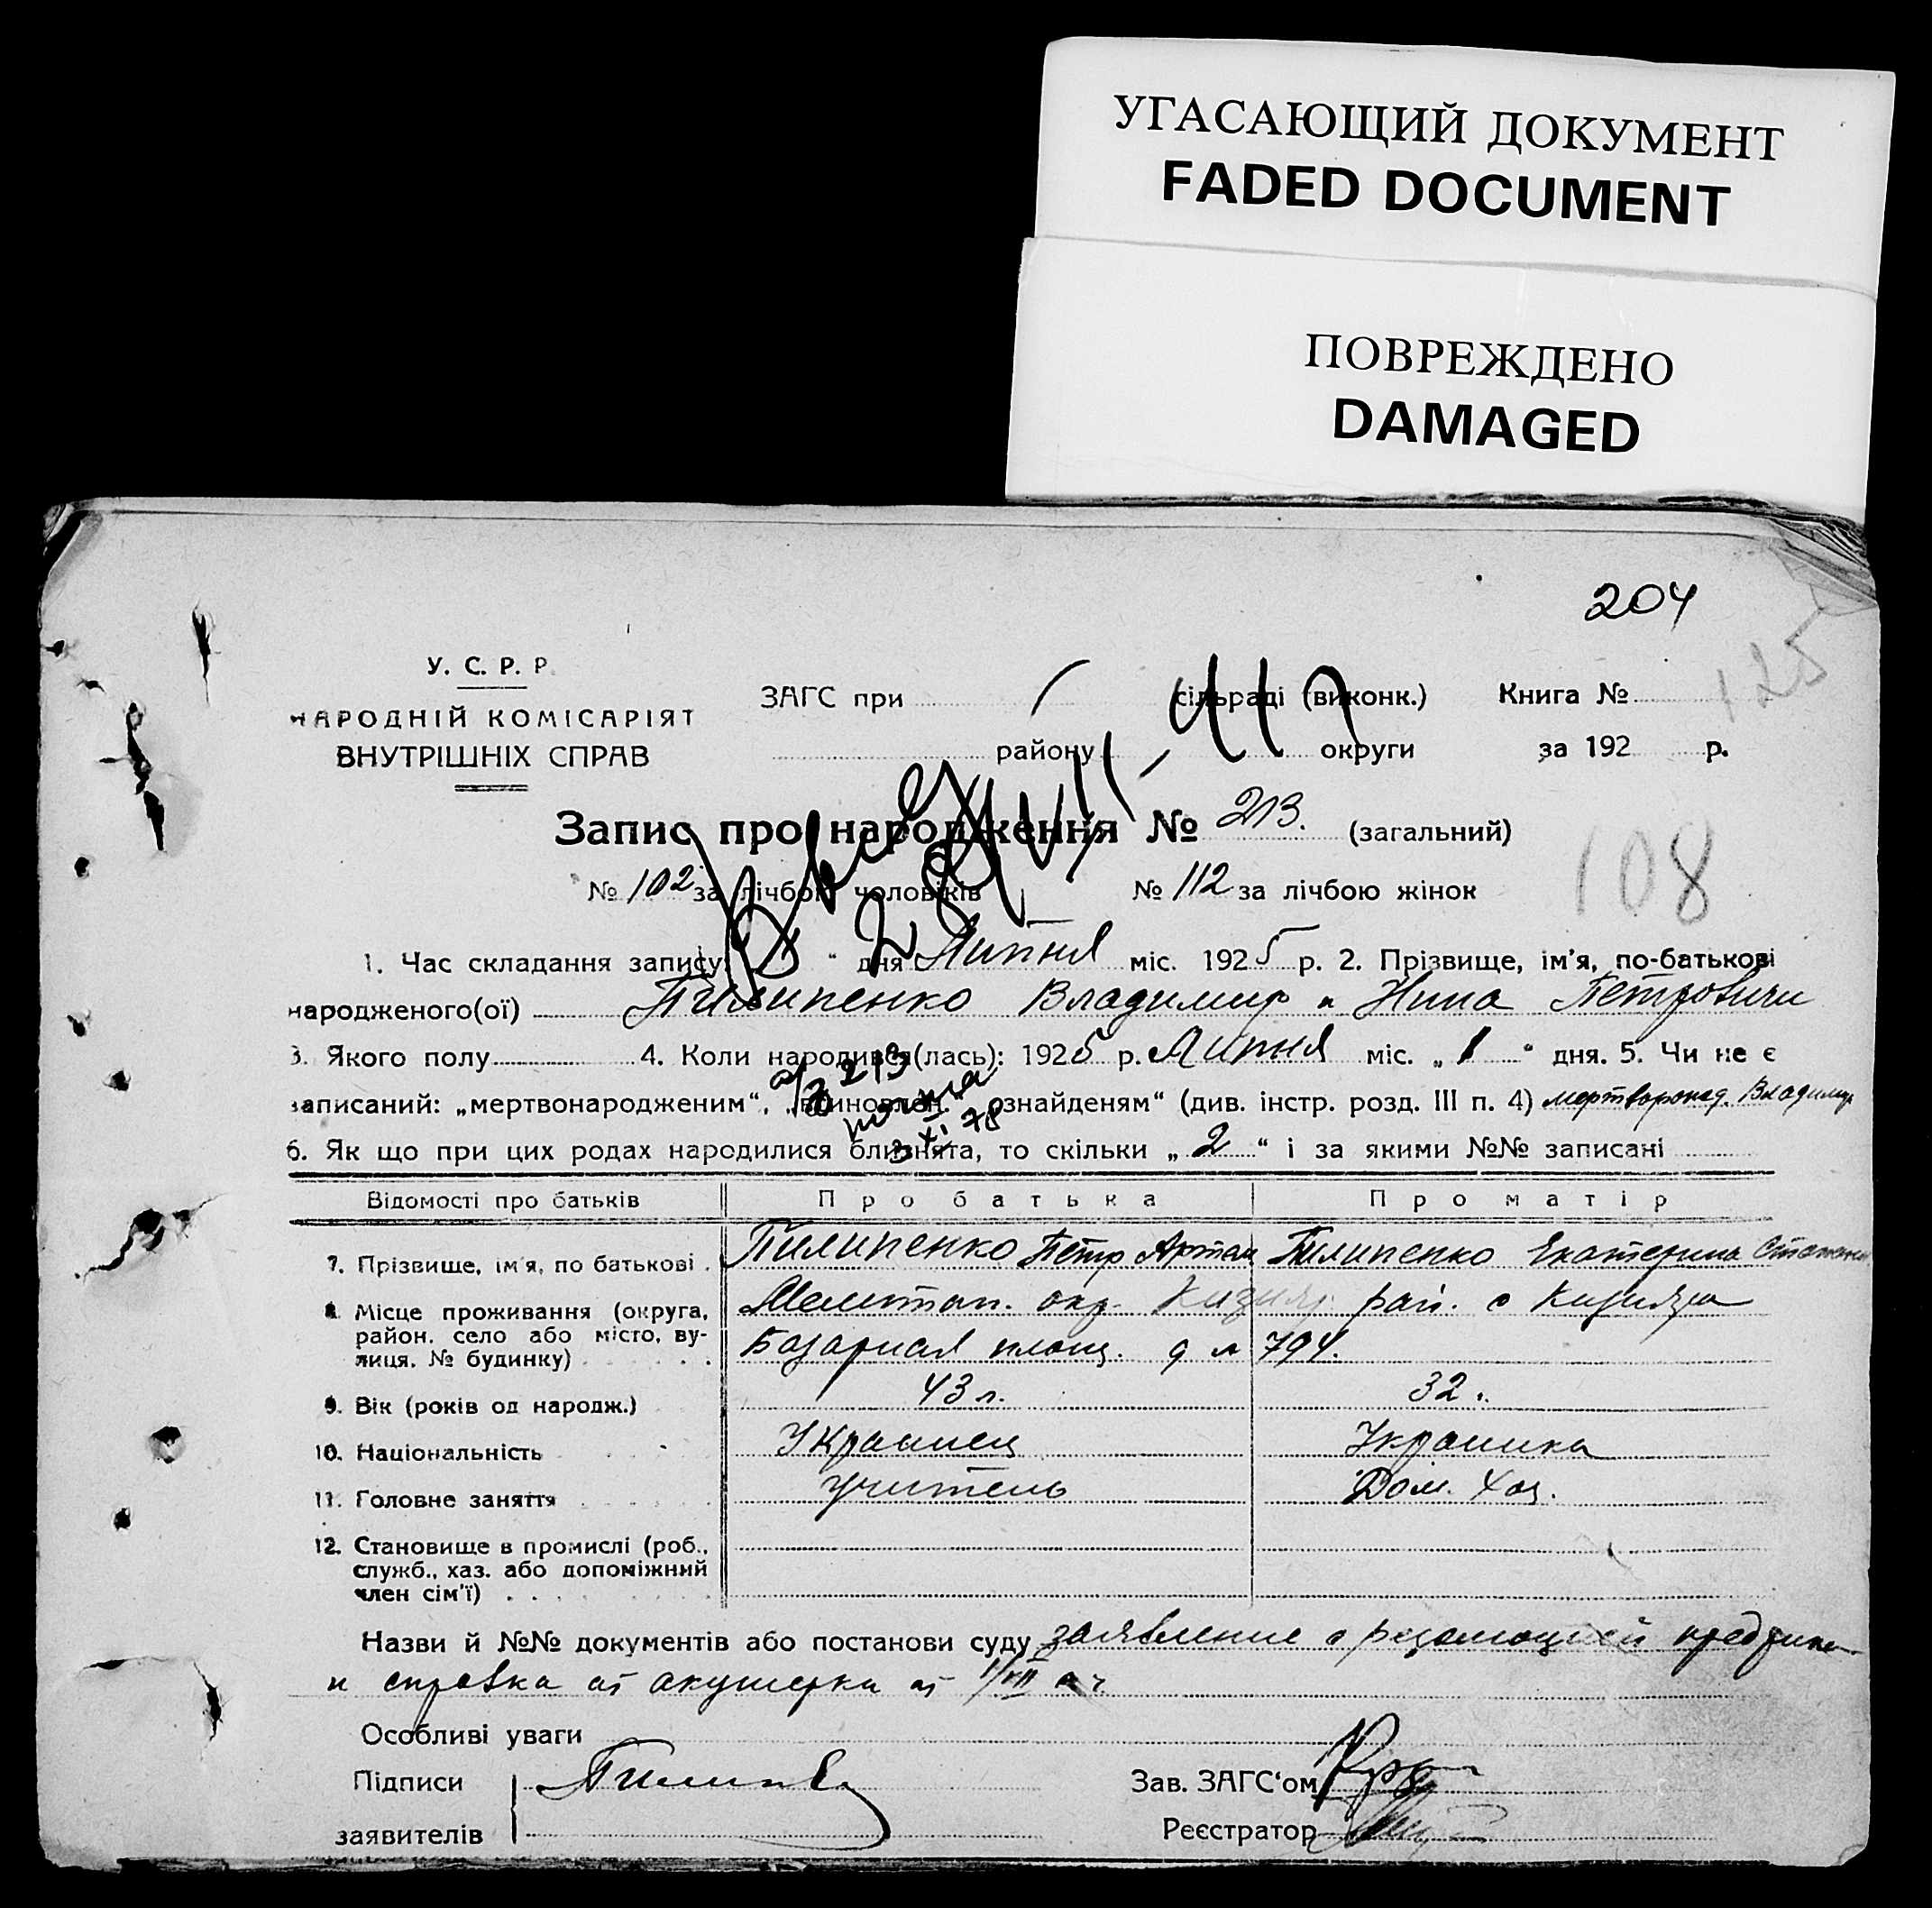 УГАСАЮЩИЙ ДОКУМЕНТ
FADED DOCUMENT
ПОВРЕЖДЕНО
DAMAGED
204
125
У. С. Р. Р.
НАРОДНІЙ КОМІСАРІЯТ
ВНУТРІШНІХ СПРАВ
ЗАГС при сільраді (виконк.) Книга №
району округи за 192 р.
Запис про народження № 213. (загальний)
108
№ 102 за лічбою чоловіків № 112 за лічбою жінок
1. Час складання запису: " дня Липня міс. 1925 р. 2. Прізвище, ім'я, по-батькові
народженого(ої) Пилипенко Владимир и Нина Петровичи
3. Якого полу 4. Коли народився(лась): 1925 р. Липня міс. „ 1 " дня. 5. Чи не є
записаний: „мертвонародженим", „ ознайденям" (див. інстр. розд. III п. 4) мертворожд. Владимир
6. Як що при цих родах народилися близнята, то скільки „ 2 " і за якими №№ записані
Відомості про батьків Про батька Про матір
7. Прізвище, ім'я, по батькові. Пилипенко Петр Артам Пилипенко Екатерина
8. Місце проживання (округа, Мелитоп. окр. Кизияр. рай. с Кизияра
район, село або місто, ву-
лиця, № будинку) Базарная площ. д № 794.
9. Вік (років од народж.) 43 л. 32.
10. Національність Украинец Украинка
11. Головне заняття учитель Дом. Хоз.
12. Становище в промислі (роб.,
служб., хаз. або допоміжний
член сім'ї)
Назви й №№ документів або постанови суду заявление с резолюцией
и справка от акушерки от 1/VII
Особливі уваги
Підписи Зав. ЗАГС'ом
заявителів Реєстратор